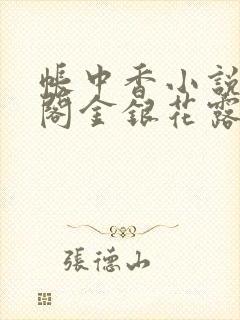 帳中香小說
閣金銀花露
張德山